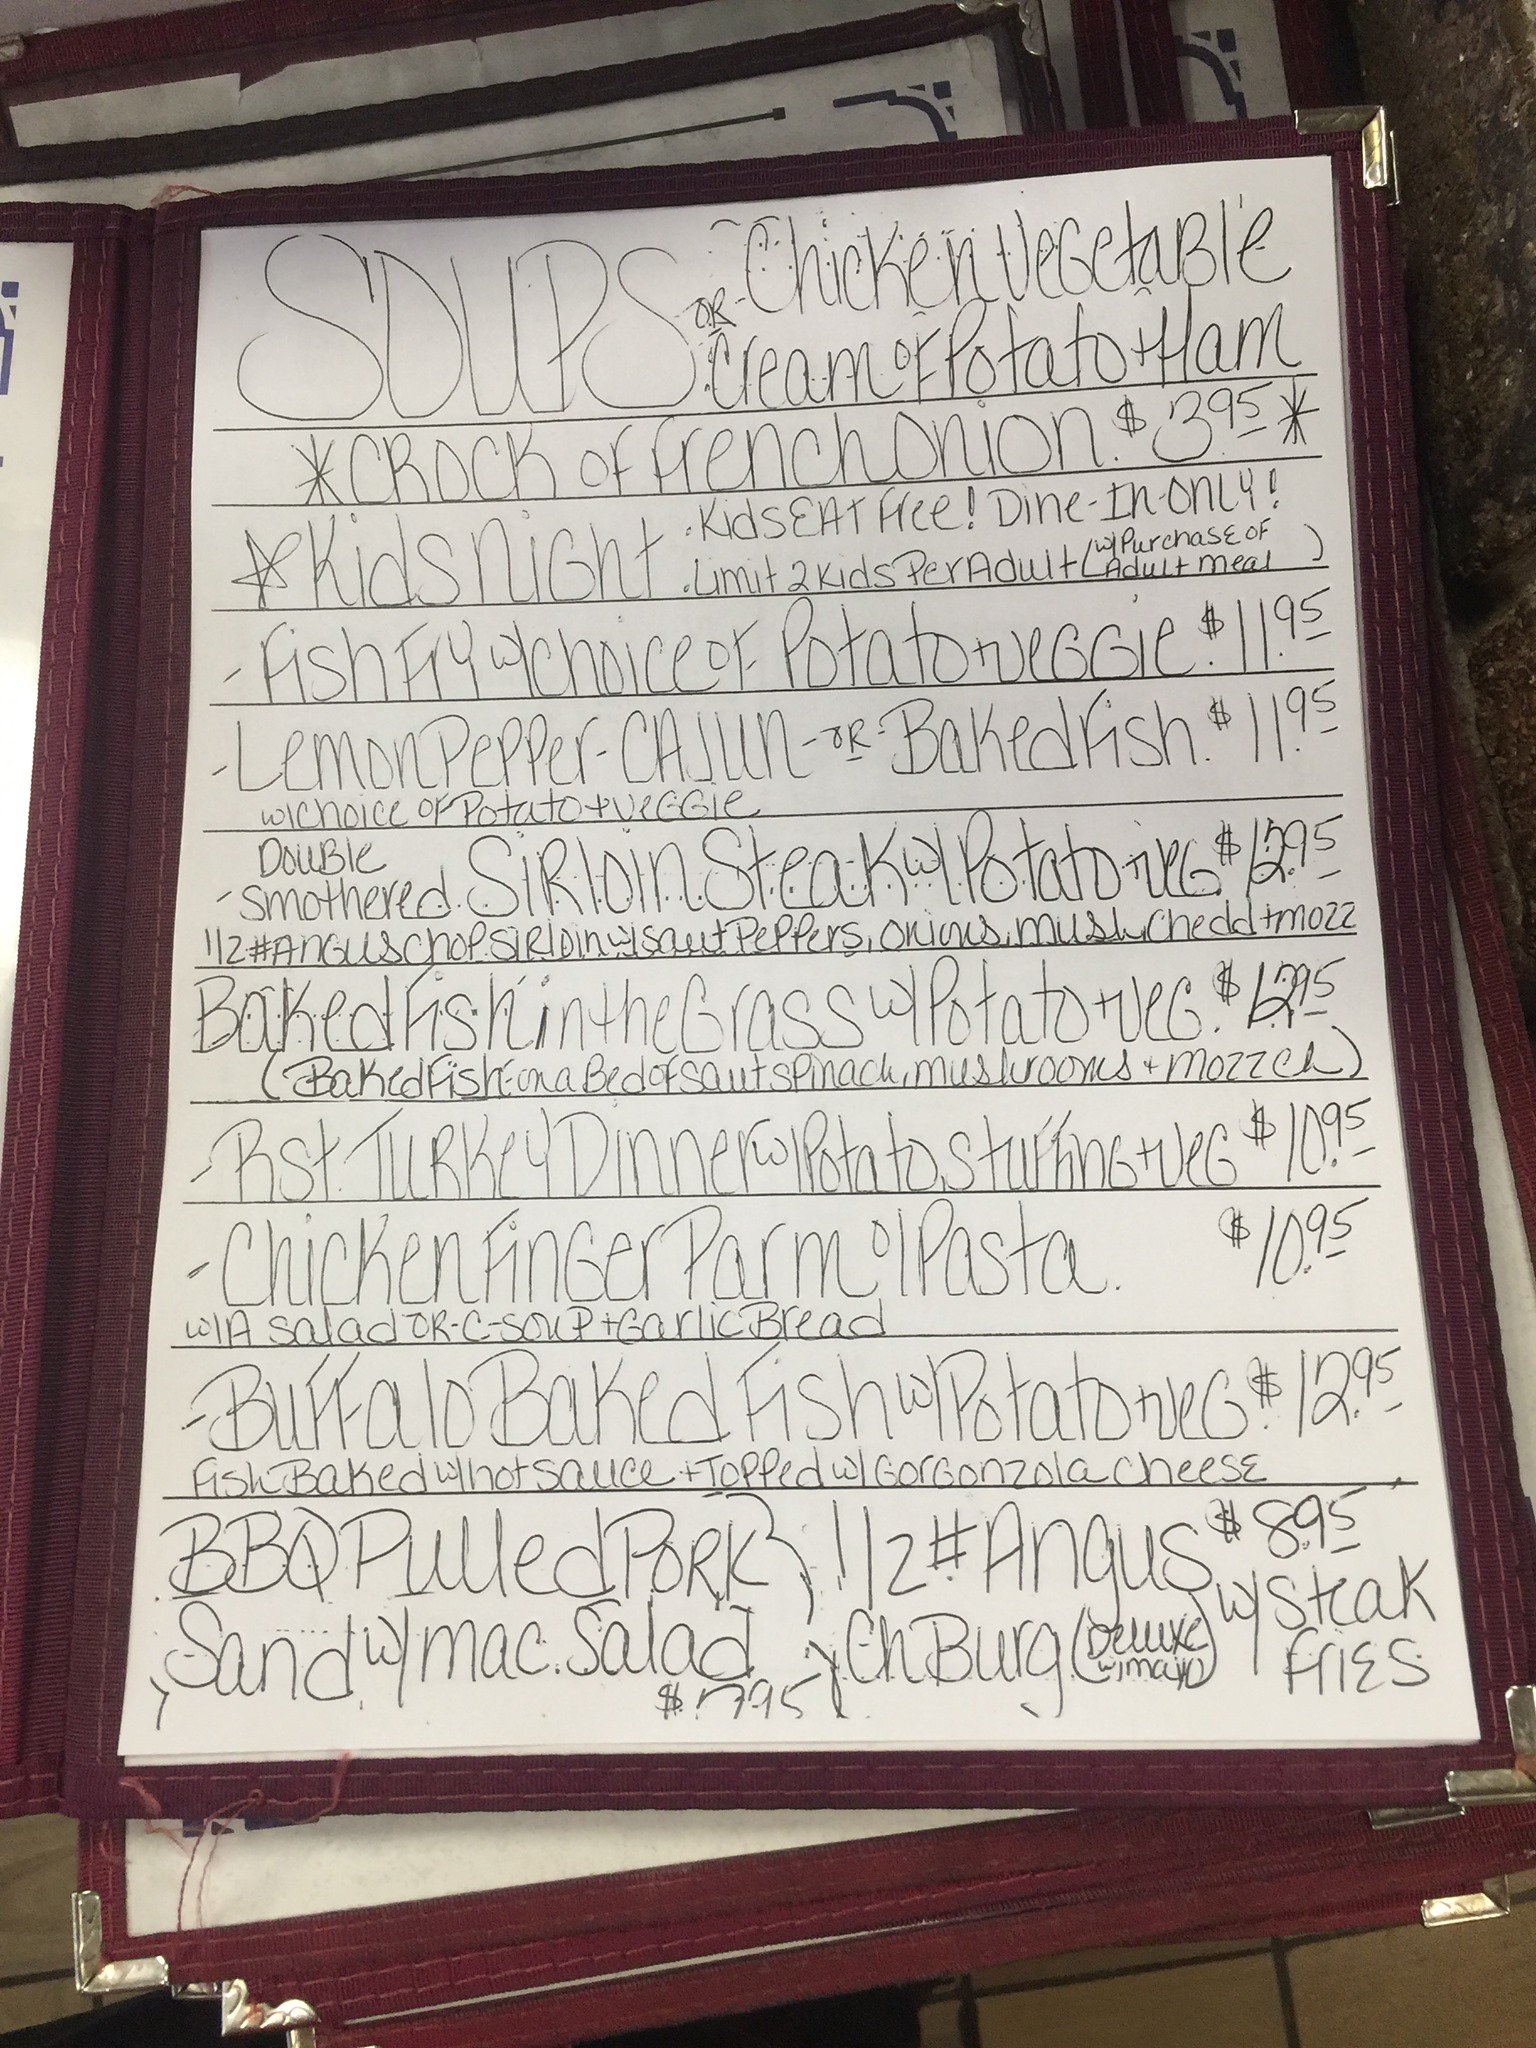 SOUPS - Chicken Vegetable
OR Cream of Potato + Ham
*CROCK of French Onion. $3.95*
*Kids Night . Kids EAT Free! Dine-In-ONLY!
. Limit 2 Kids Per Adult (w/Purchase OF
Adult meal)
- Fish Fry w/choice of Potato + veggie. $11.95
- Lemon Pepper - CAJUN - OR - Baked Fish. $11.95
w/choice of Potato + veggie
Double
- smothered. Sirloin Steak w/Potato + veg $12.95
1/2# Angus Chop. Sirloin w/saut Peppers, onions, mush, Chedd + mozz
Baked Fish in the Grass w/Potato + veg. $12.95
(Baked Fish - on a Bed of saut spinach, mushrooms + mozz ch)
- Rst. Turkey Dinner w/Potato, stuffing + veg $10.95
- Chicken Finger Parm o/Pasta. $10.95
w/A salad OR-C-soup + Garlic Bread
- Buffalo Baked Fish w/Potato + veg. $12.95
Fish Baked w/hot sauce + Topped w/Gorgonzola cheese
BBQ Pulled Pork
Sand w/mac. Salad
$7.95
1/2# Angus $8.95
Ch Burg (Deluxe
w/mayo) w/steak
fries